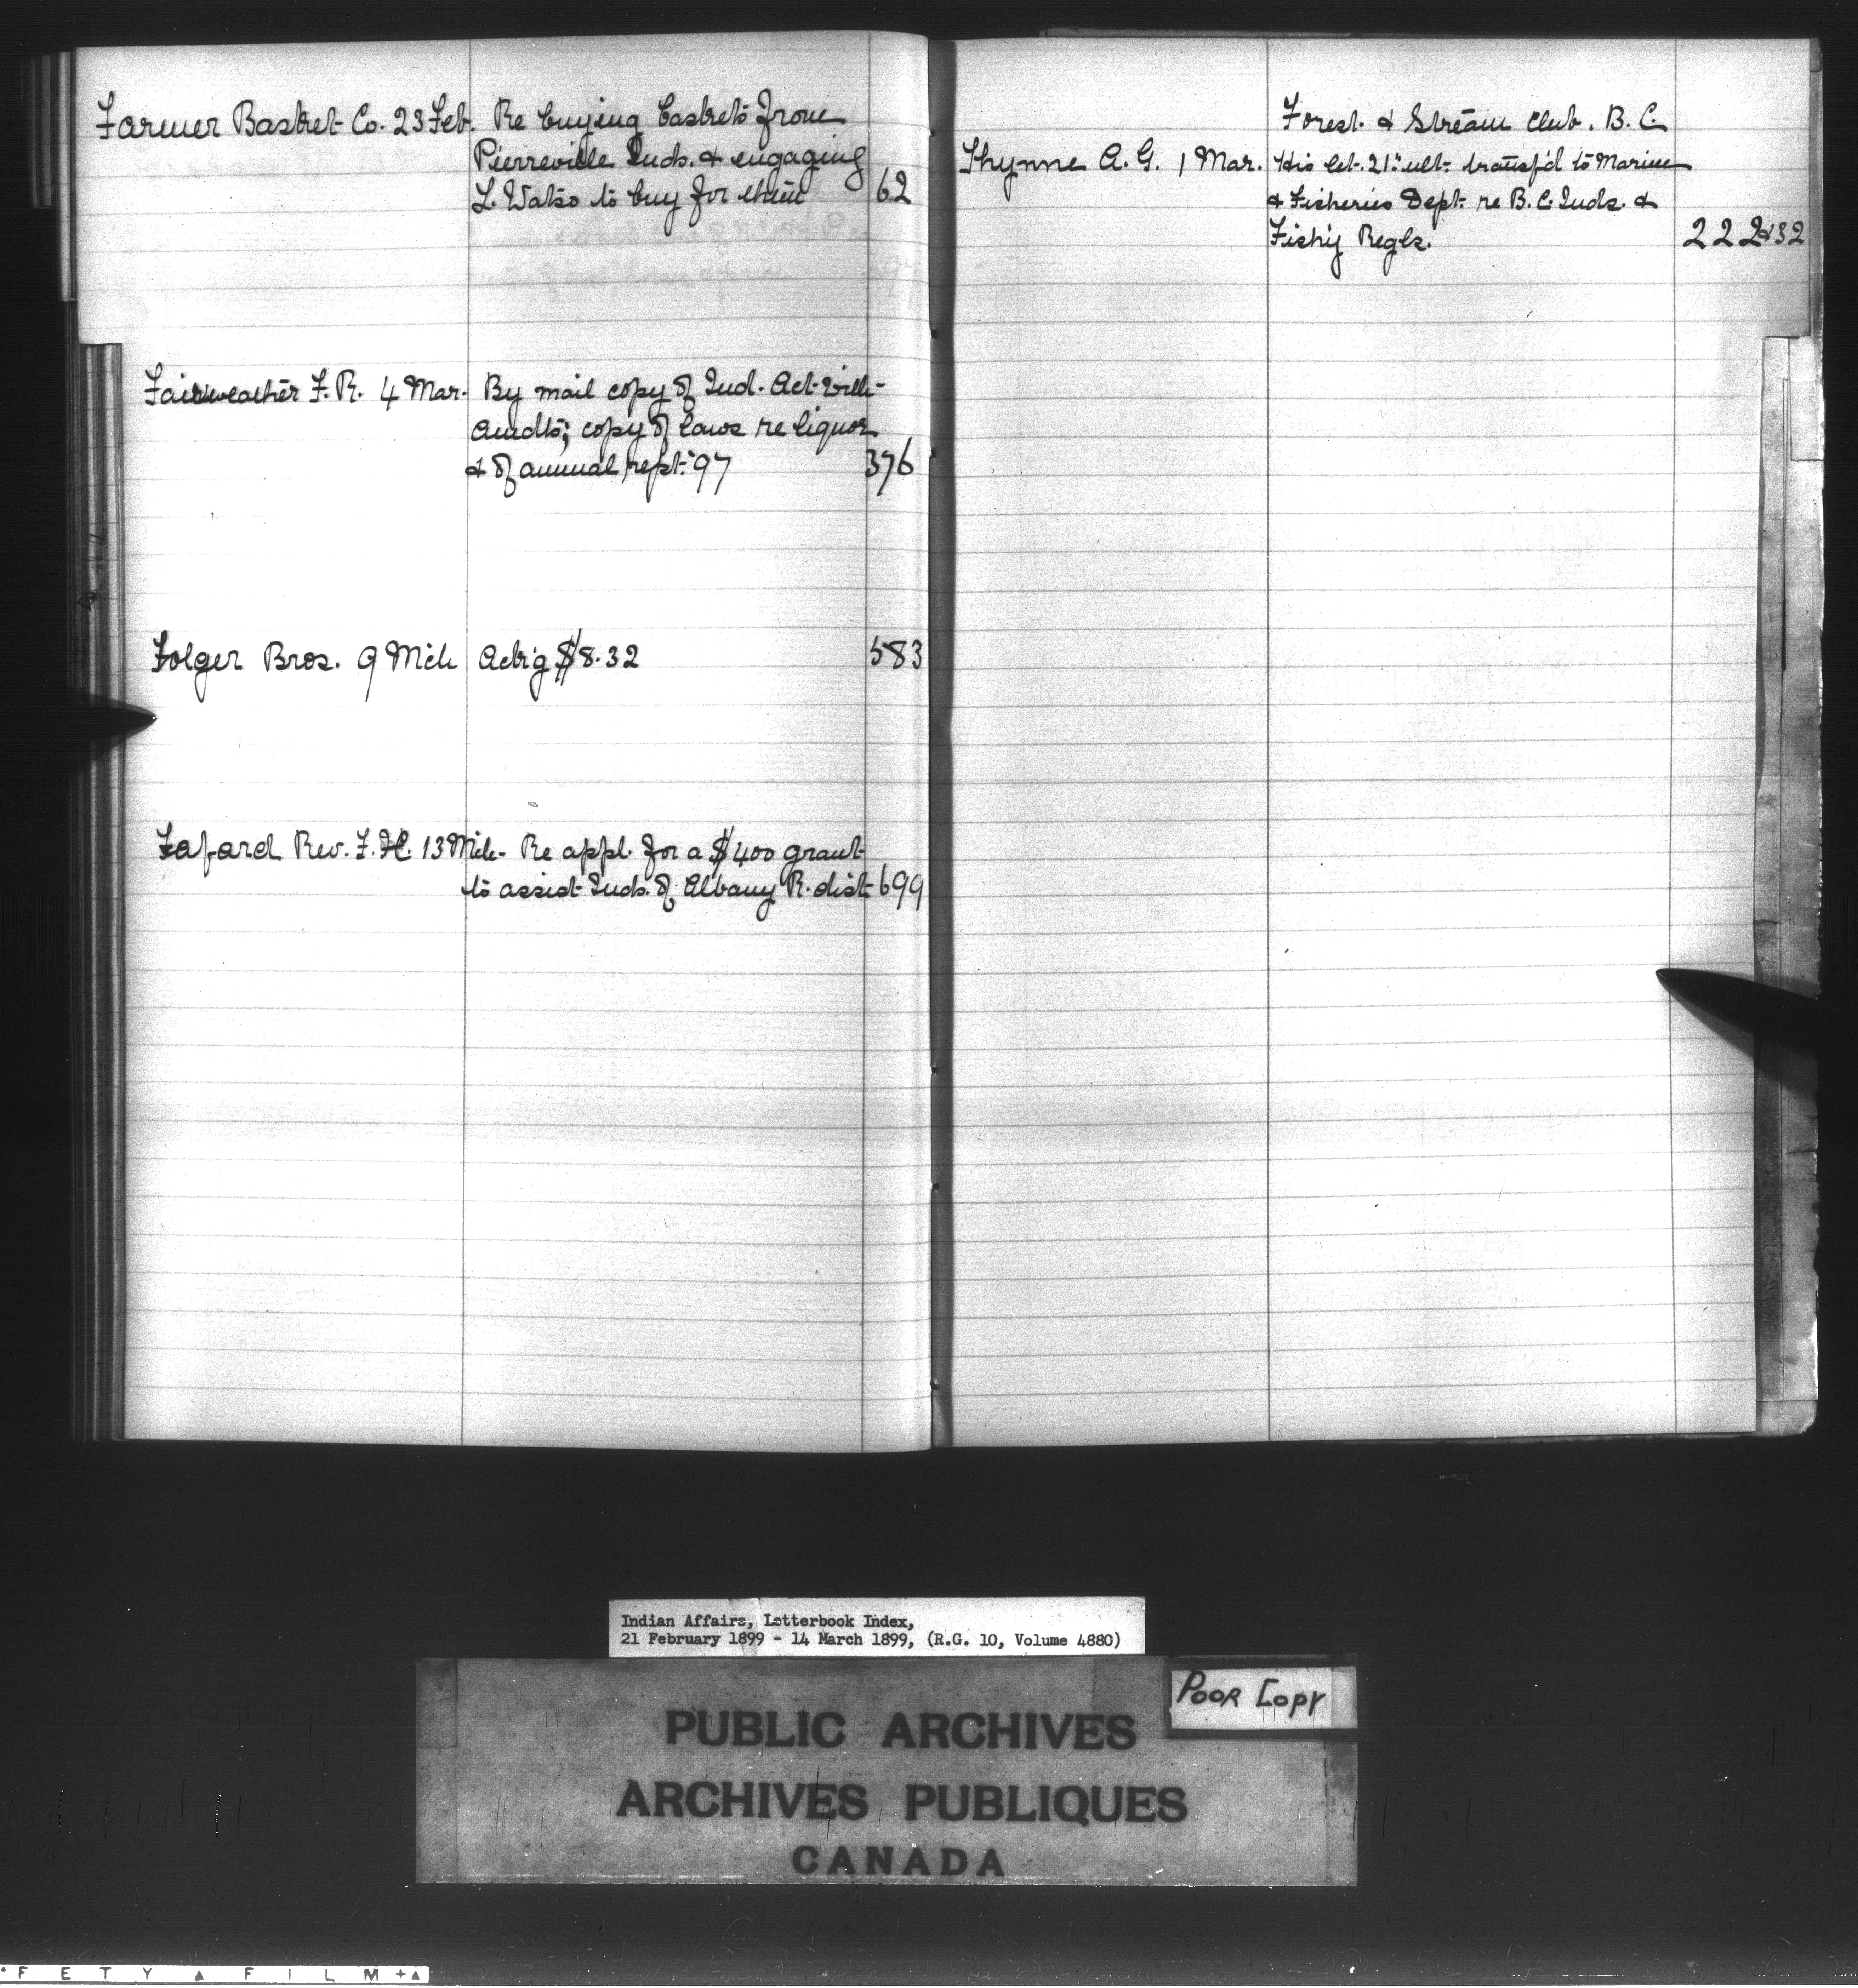 Farmer Basket Co. 23 Feb. Re buying baskets from
Pierreville Inds. & engaging
L. Watso to buy for them 62
Fairweather F. R. 4 Mar. By mail copy of Ind. Act with
amdts; copy of laws re liquor
& of annual rept. '97 376
Folger Bros. 9 Mch Ackg $8.32 583
Fafard Rev. F. X. 13 Mch. Re appl. for a $400 grant
to assist Inds. of Albany R. dist 699
Forest & Stream Club. B.C.
Thynne A. G. 1 Mar. His let. 21st ult. transf'd to Marine
& Fisheries Dept. re B.C. Inds. &
Fish'g Regls. 222&32
Indian Affairs, Letterbook Index,
21 February 1899 - 14 March 1899, (R.G. 10, Volume 4880)
POOR COPY
PUBLIC ARCHIVES
ARCHIVES PUBLIQUES
CANADA
FETY ▲ FILM +▲